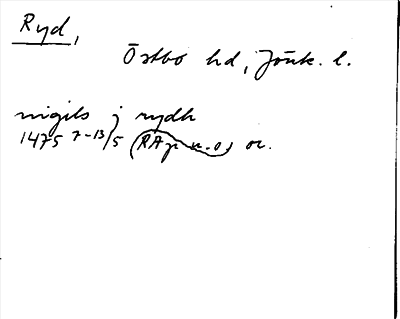 Ryd,
Östbo hd, Jönk. l.
nigils j rydh
1475 7-13/5 (RAp n. 0) or.